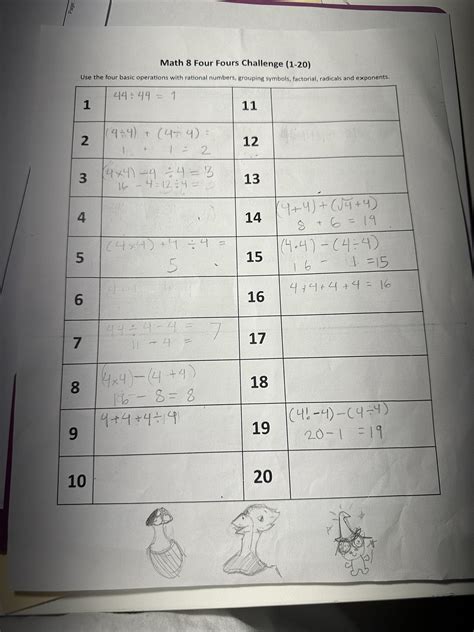 Math 8 Four Fours Challenge (1-20)
Use the four basic operations with rational numbers, grouping symbols, factorial, radicals and exponents.
1
44÷44 = 1
11
2
(4÷4) + (4÷4) =
1 + 1 = 2
12
3
(4x4) -4 ÷4 = 3
16 - 4=12÷4 =
13
4
14
(4+4) + (√4+4)
8 + 6 = 14
5
(4x4) +4 ÷4 =
5
15
(4·4) - (4÷4)
16 - 1 =15
6
16
4+4+4+4 = 16
7
44÷4-4 = 7
11 - 4 =
17
8
(4x4)-(4+4)
16 - 8 = 8
18
9
4+4+4÷4
19
(4!-4)-(4÷4)
20-1 =19
10
20